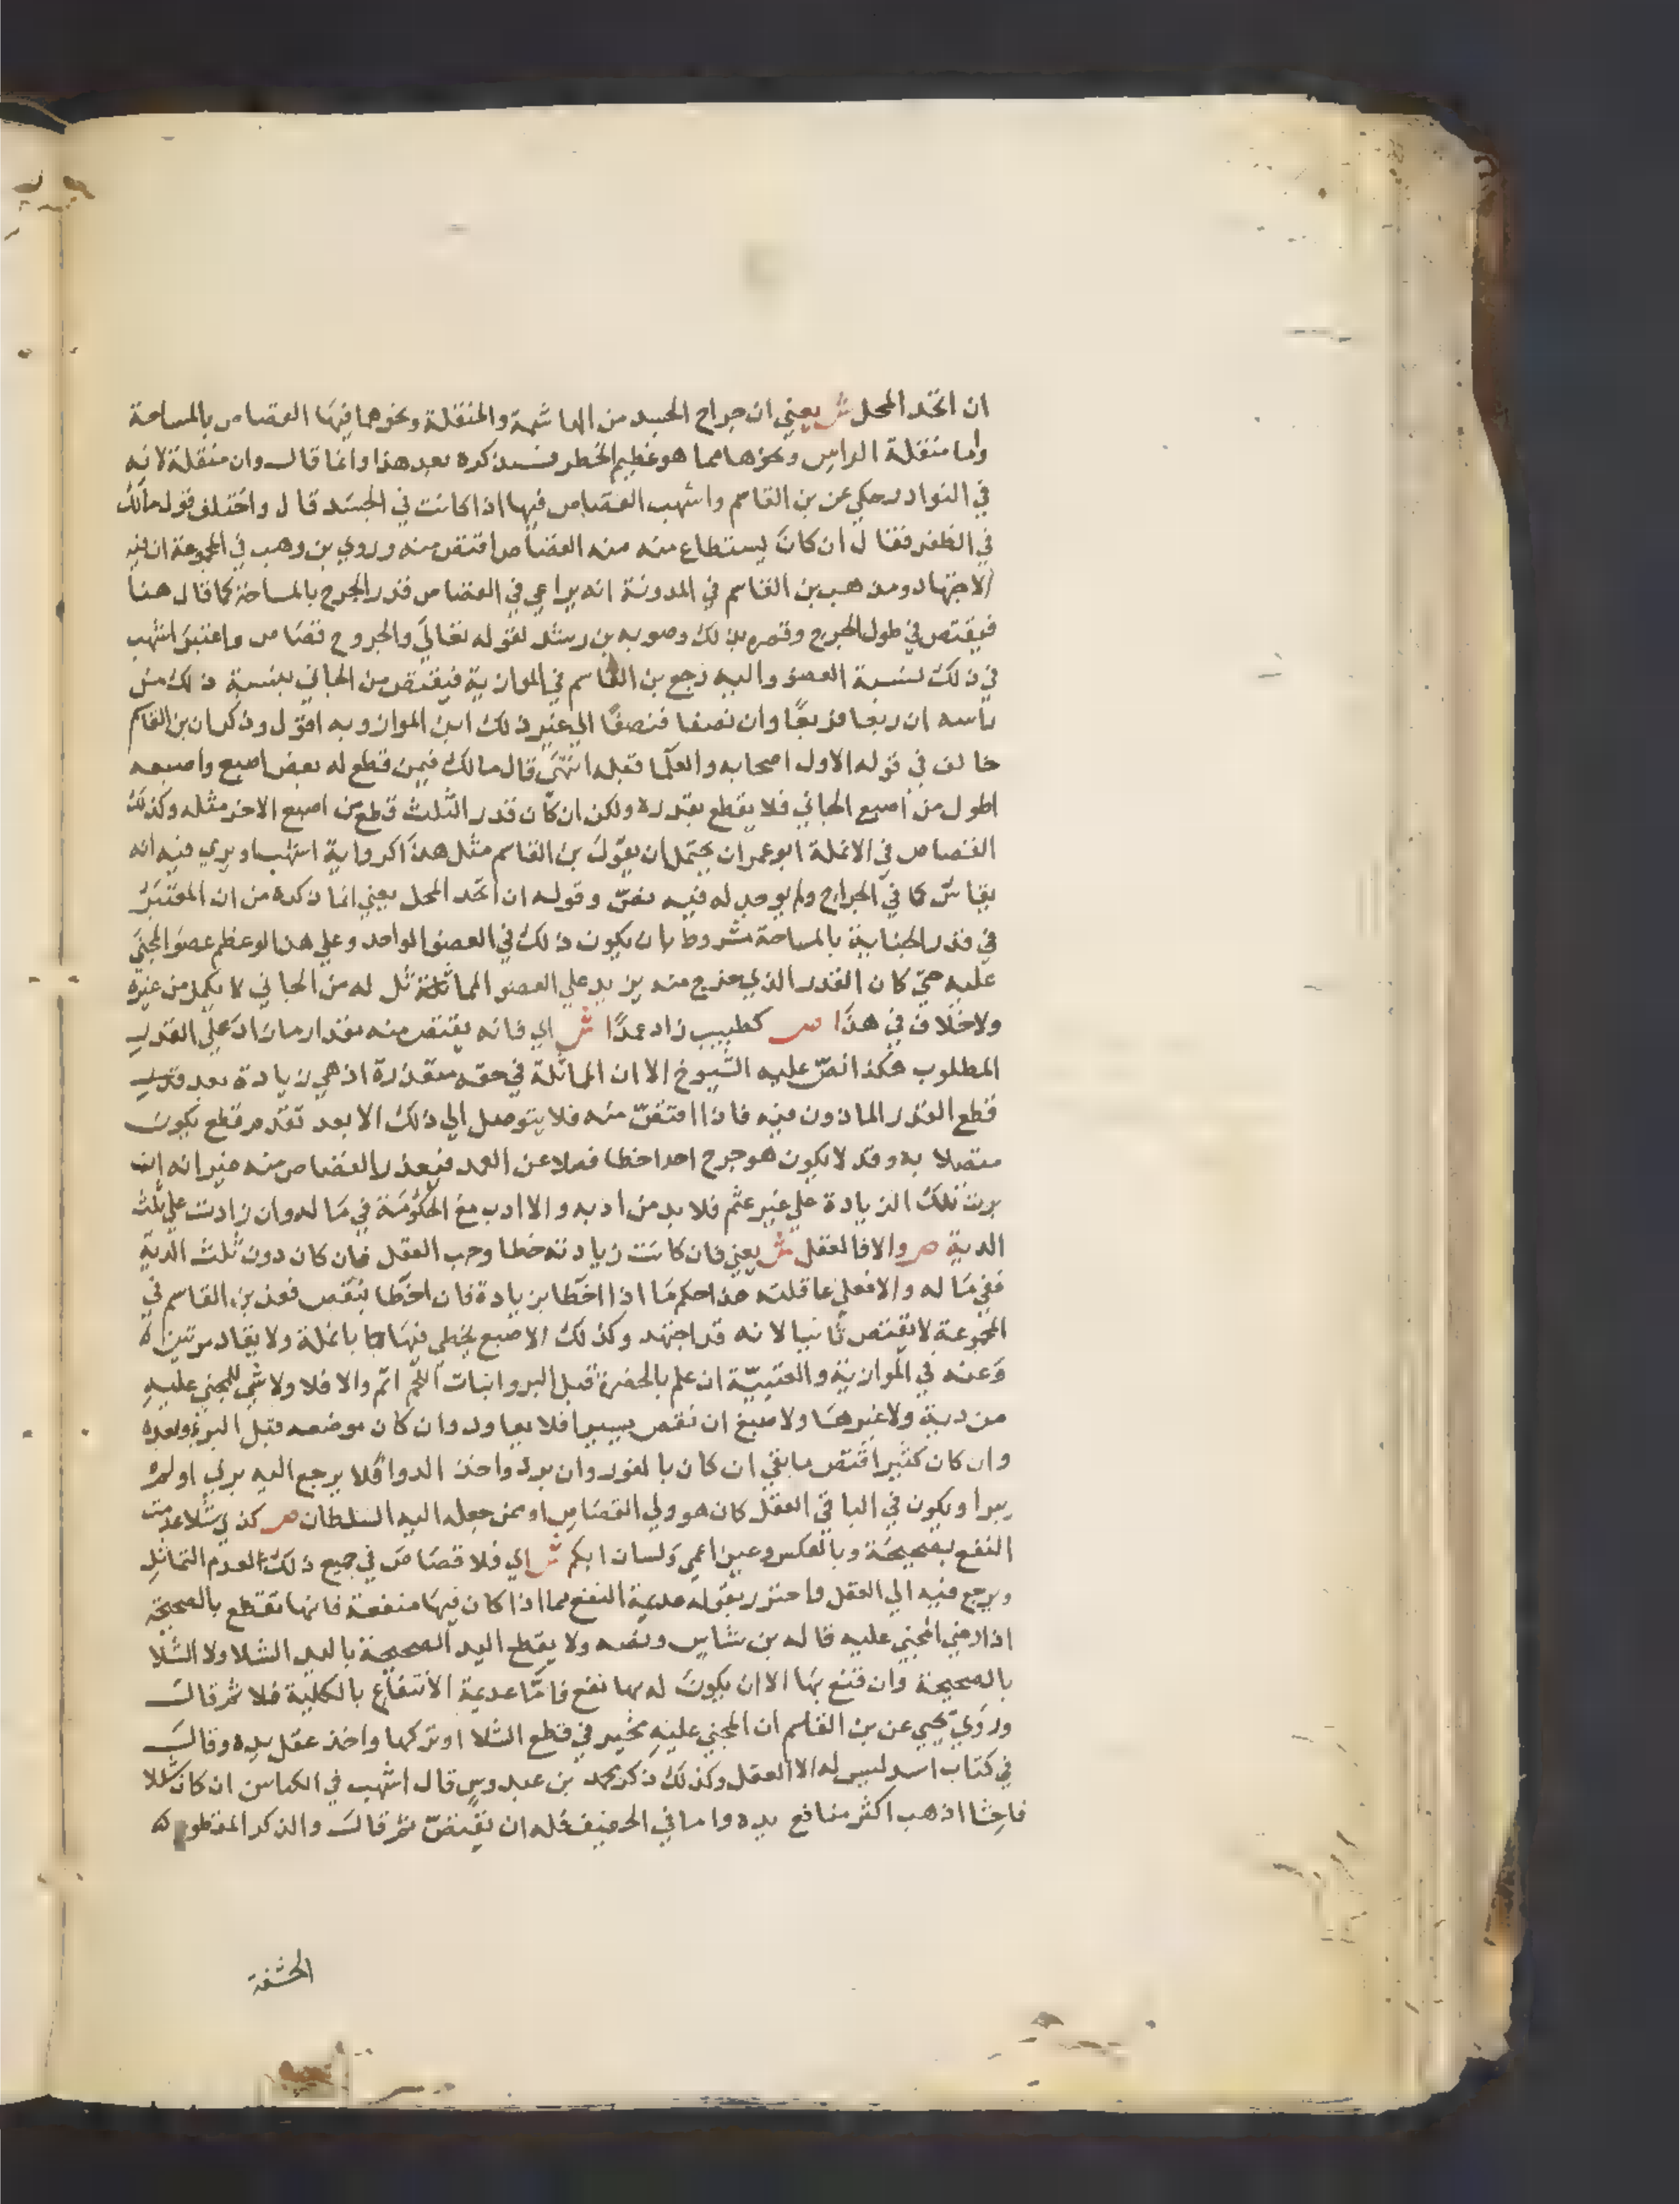 ان اتحد المحل ش يعني ان جراح الجسد من الهاشمة والمنقلة ونحوهما فيها القصاص بالمساحة
واما منقلة الراس ونحوها مما هو عظيم الخطر فسيذكره بعد هذا وانما قال وان منقلة لانه
في النوادر حكي عن بن القاسم واشهب القصاص فيها اذا كانت في الجسد قال واختلف قول مالك
في الظفر فقال ان كان يستطاع منه القصاص اقتص منه وروي بن وهب في المجموعة ان فيه
الاجتهاد ومذهب بن القاسم في المدونة انه يراعي في القصاص قدر الجرح بالمساحة كما قال هنا
فيقتص في طول الجرح وقصره بذلك وصوبه بن رشد لقوله تعالي والجروح قصاص واعتبر اشهب
في ذلك نسبة العضو واليه رجع بن القاسم في الموازية فيقتص من الجاني بنسبة ذلك من
راسه ان ربعا فربعا وان نصفا فنصفا الي غير ذلك ابن المواز وبه اقول وذكر ان بن القاسم
خالف في قوله الاول اصحابه والعلما قبله انتهي قال مالك فيمن قطع له بعض اصبع واصبعه
اطول من اصبع الجاني فلا يقطع بقدره ولكن ان كان قدر الثلث قطع من اصبع الاخر مثله وكذلك
القصاص في الانملة ابو عمران يحتمل ان يقول بن القاسم مثل هذا كرواية اشهب او يري فيه انه
يقاس كما في الجراح ولم يوجد له فيه نص وقوله ان اتحد المحل يعني انما ذكره من ان المعتبر
في قدر الجناية بالمساحة مشروط بان يكون ذلك في العضو الواحد وعلي هذا لو عظم عضو المجني
عليه حتي كان القدر الذي جرح منه يزيد علي العضو المماثل له من الجاني لا يكمل من غيره
ولا خلاف في هذا ص كطبيب زاد عمدا ش اي فانه يقتص منه بمقدار ما زاد علي القدر
المطلوب هكذا نص عليه الشيوخ الا ان المماثلة في حقه متعذرة اذ هي زيادة بعد
قطع القدر الماذون فيه فاذا اقتص منه فلا يتوصل الي ذلك الا بعد تقدم قطع يكون
متصلا به وقد لا يكون هو جرح احدا خطا فضلا عن العمد فيعذر القصاص منه غير انه ان
برئت تلك الزيادة علي غير عثم فلا بد من ادبه والا ادب مع الحكومة في ماله وان زادت علي ثلث
الدية ص والا فالعقل ش يعني فان كانت زيادته خطا وجب العقل فان كان دون ثلث الدية
ففي ماله والا فعلي عاقلته هذا حكم ما اذا اخطا بزيادة فان اخطا بنقص فعن بن القاسم في
المجموعة لا يقتص ثانيا لانه قد اجتهد وكذلك الاصبع يخطي فيها بانملة ولا يقاد مرتين
وعنه في الموازية والعتبية ان علم بالحضرة قبل البرو انبات اللحم اتم والا فلا ولا شي للمجني عليه
من دية ولا غيرها ولاصبغ ان نقص يسيرا فلا يعاود وان كان بموضعه قبل البرؤ وبعده
وان كان كثيرا اقتص ما بقي ان كان بالفور وان برد واخذ الدوا فلا يرجع اليه بري او لم
يبرا ويكون في الباقي العقل كان هو ولي القصاص او ممن جعله اليه السلطان ص كذي شلا عدمت
النفع بصحيحة وبالعكس وعين اعمي ولسان ابكم ش اي فلا قصاص في جميع ذلك لعدم التماثل
ويرجع فيه الي العقل واحترز بقوله عديمة النفع مما اذا كان فيها منفعة فانها تقطع بالصحيحة
اذا رضي المجني عليه قاله بن شاس ونصه ولا يقطع اليد الصحيحة باليد الشلا ولا الشلا
بالصحيحة وان قنع بها الا ان يكون له بها نفع فاما عديمة الانتفاع بالكلية فلا ثم قال
وروي يحيي عن بن القاسم ان المجني عليه مخير في قطع الشلا او تركها واخذ عقل يده وقال
في كتاب اسد ليس له الا العقل وكذلك ذكر محمد بن عبدوس قال اشهب في الكماسن ان كان شللا
فاحشا اذهب اكثر منافع يده واما في الخفيف فله ان يقتص ثم قال والذكر المقطوع
الحشفة